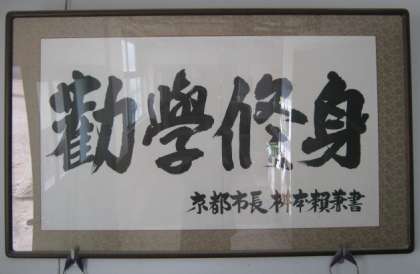 勸學修身
京都市長 桝本頼兼書